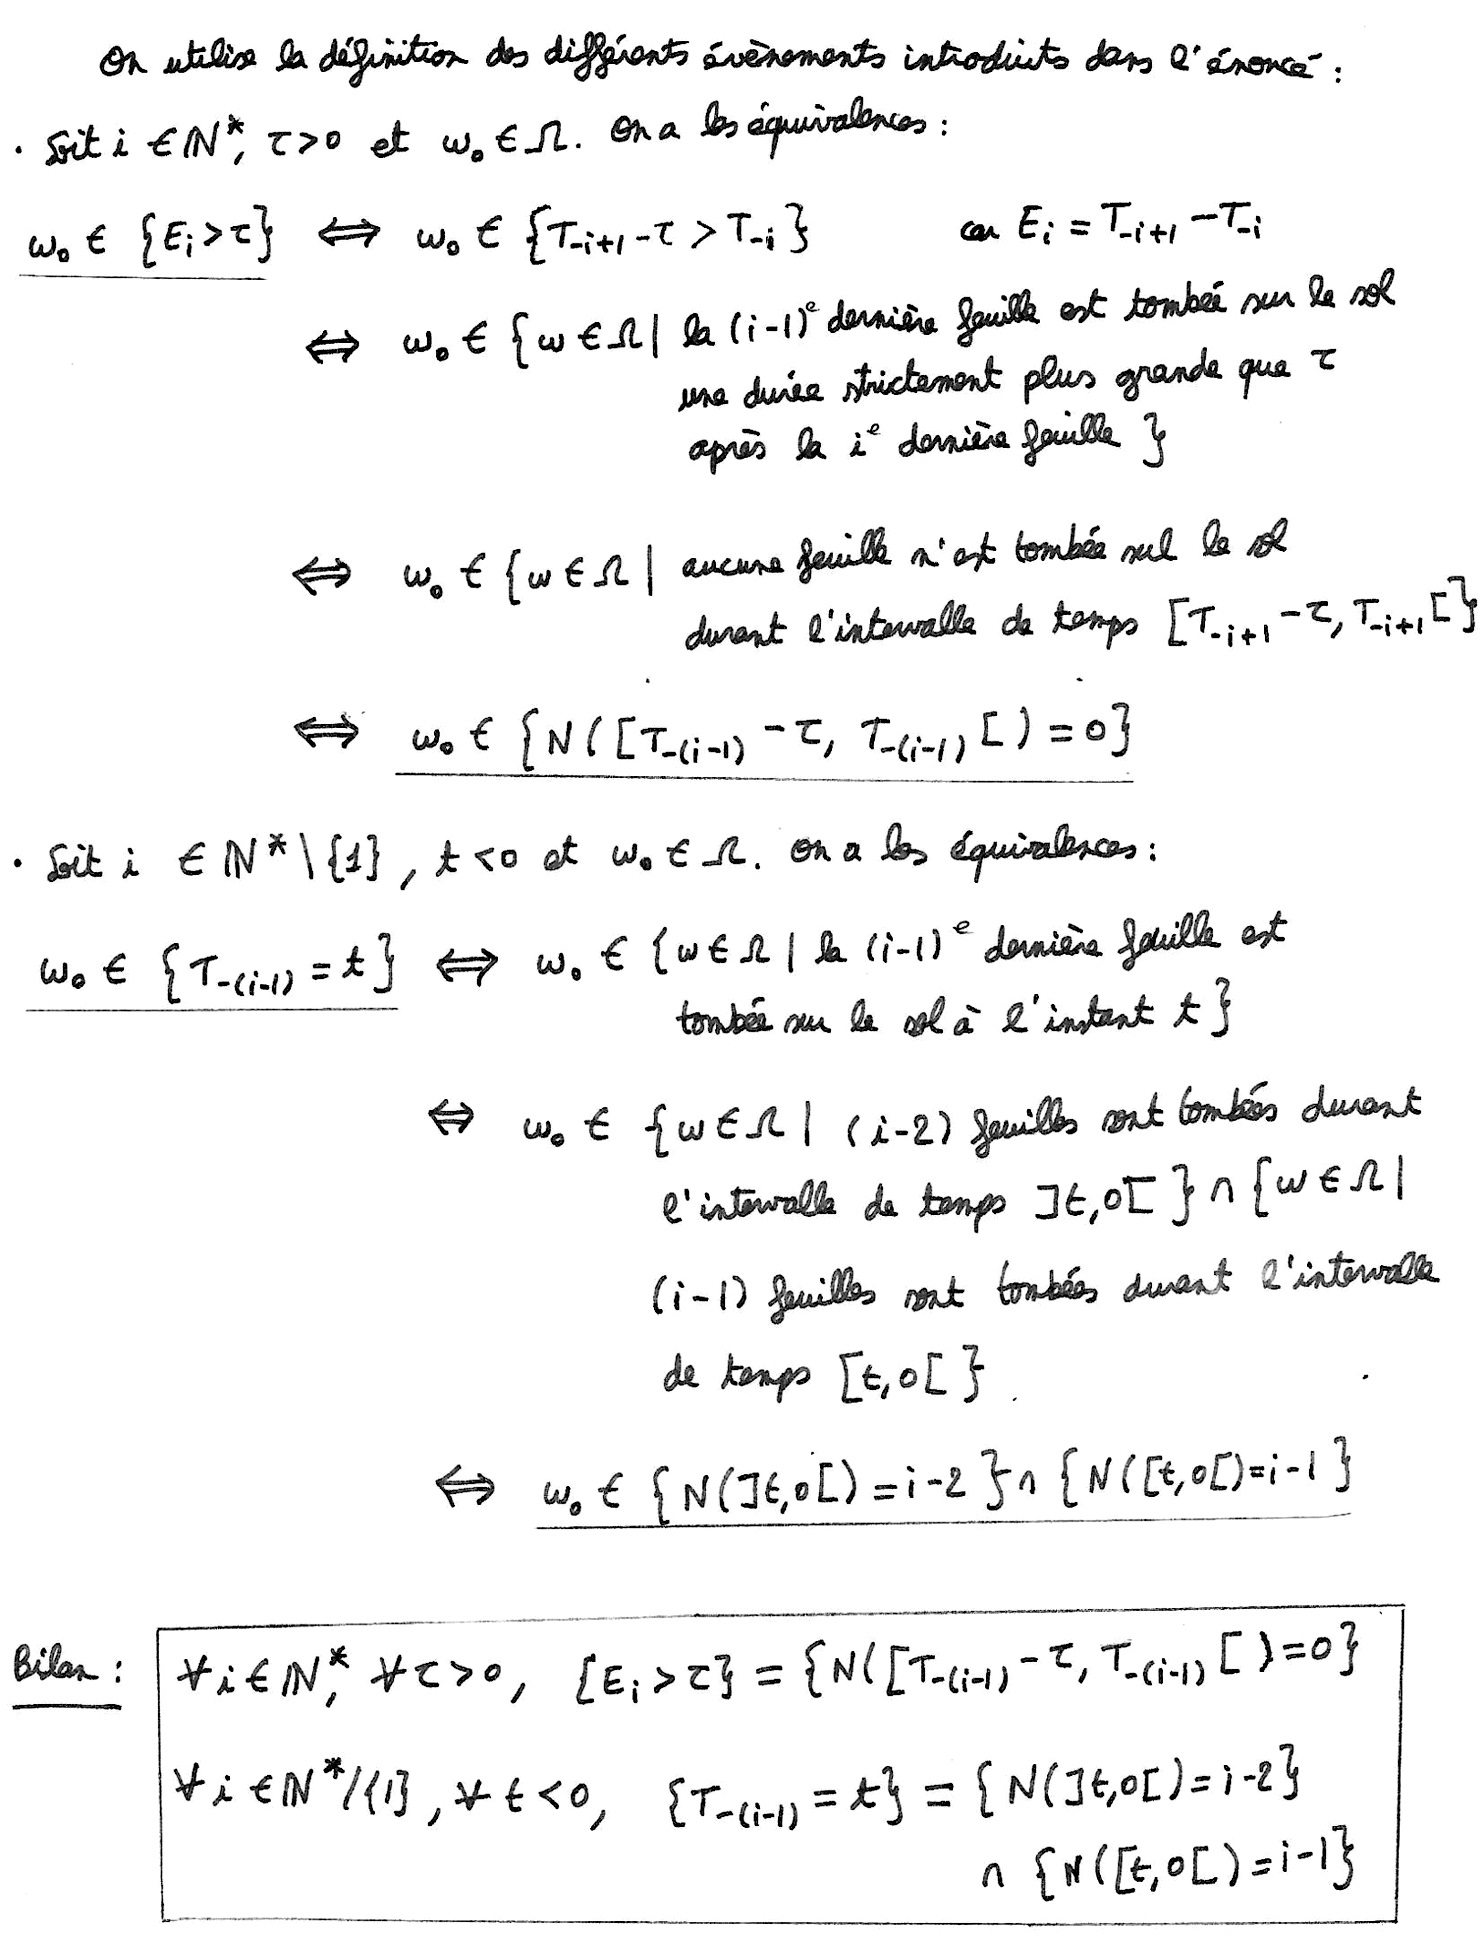 On utilise la définition des différents évènements introduits dans l'énoncé :
• Soit i ∈ ℕ*, τ > 0 et ω₀ ∈ Ω. On a les équivalences :
ω₀ ∈ {E_i > τ} ⟺ ω₀ ∈ {T_{-i+1} - τ > T_{-i}} car E_i = T_{-i+1} - T_{-i}
⟺ ω₀ ∈ {ω ∈ Ω | la (i-1)^e dernière feuille est tombée sur le sol
une durée strictement plus grande que τ
après la i^e dernière feuille }
⟺ ω₀ ∈ {ω ∈ Ω | aucune feuille n'est tombée sul le sol
durant l'intervalle de temps [T_{-i+1} - τ, T_{-i+1}[}
⟺ ω₀ ∈ {N([T_{-(i-1)} - τ, T_{-(i-1)}[) = 0}
• Soit i ∈ ℕ* \ {1}, t < 0 et ω₀ ∈ Ω. On a les équivalences :
ω₀ ∈ {T_{-(i-1)} = t} ⟺ ω₀ ∈ {ω ∈ Ω | la (i-1)^e dernière feuille est
tombée sur le sol à l'instant t}
⟺ ω₀ ∈ {ω ∈ Ω | (i-2) feuilles sont tombées durant
l'intervalle de temps ]t,0[ } ∩ {ω ∈ Ω |
(i-1) feuilles sont tombées durant l'intervalle
de temps [t,0[ }
⟺ ω₀ ∈ {N(]t,0[) = i-2} ∩ {N([t,0[) = i-1}
Bilan : ∀ i ∈ ℕ*, ∀ τ > 0, {E_i > τ} = {N([T_{-(i-1)} - τ, T_{-(i-1)}[) = 0}
∀ i ∈ ℕ*/{1}, ∀ t < 0, {T_{-(i-1)} = t} = {N(]t,0[) = i-2}
∩ {N([t,0[) = i-1}